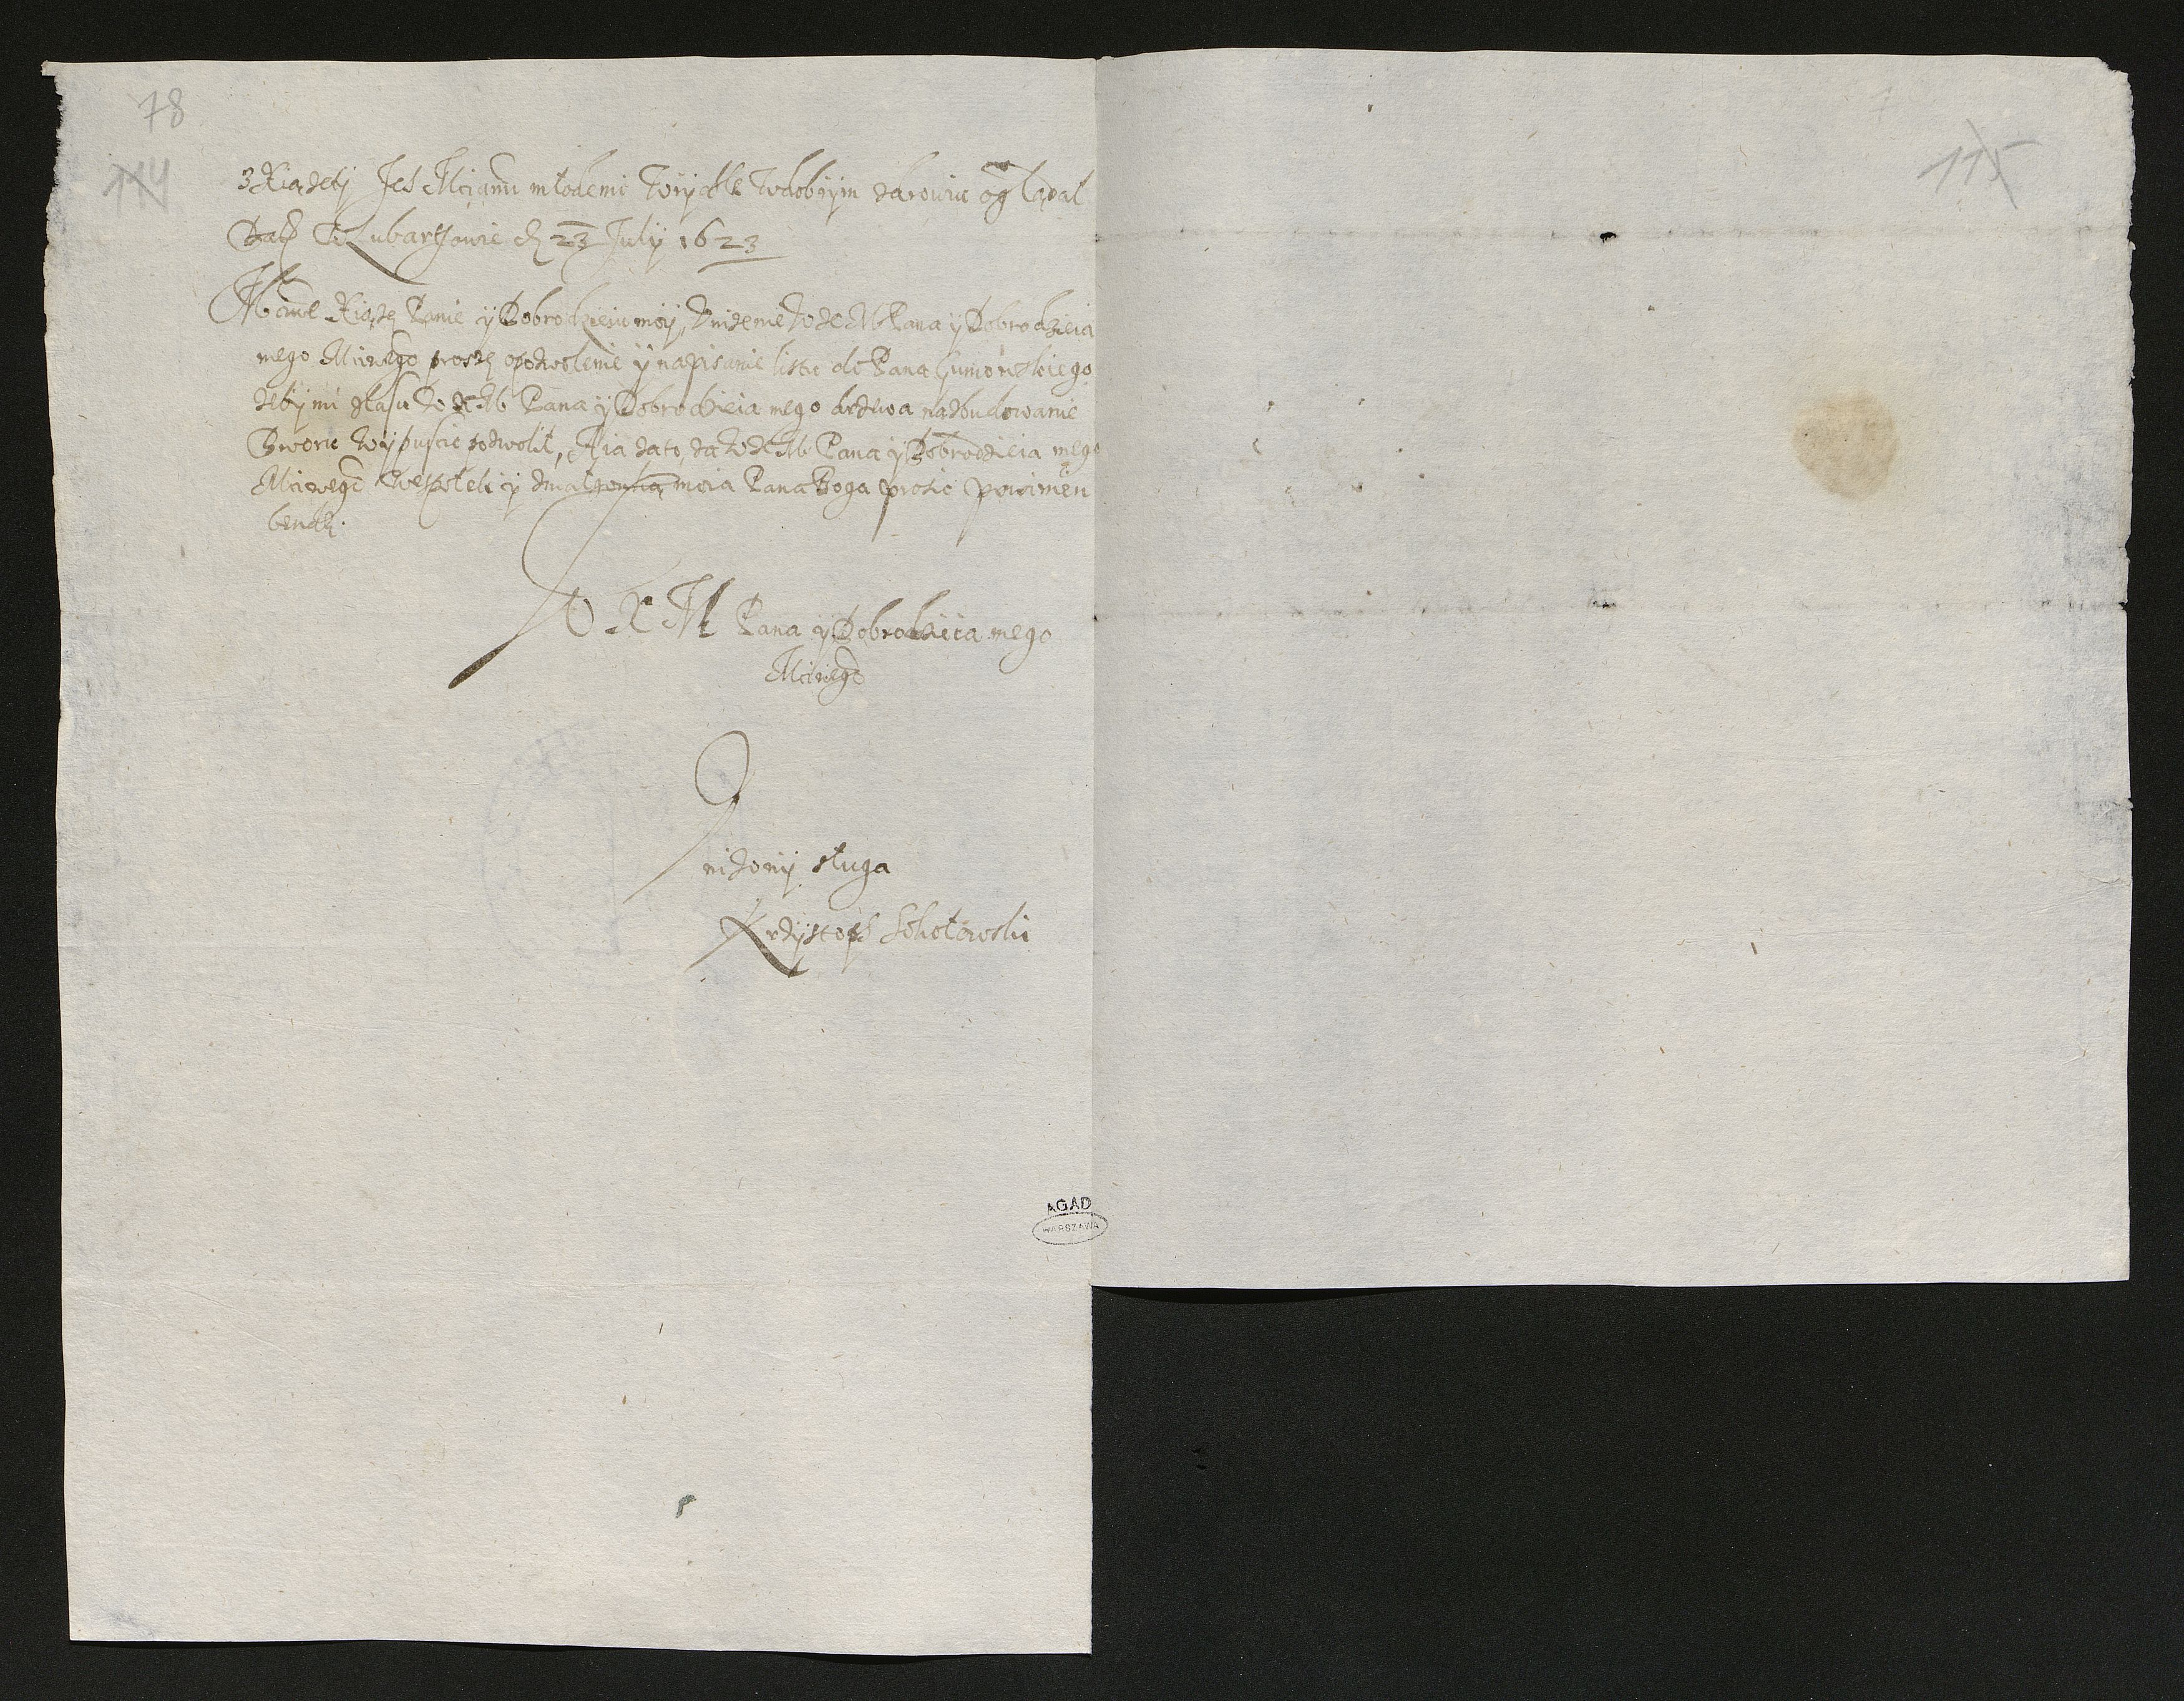 78
114
z Xiązęty Jch Mciami młodemi wrychle w dobrym zdrowiu oglądał
Dat w Lubartowie d 23 July 1623
Mciwe Xiążę Panie y Dobrodzieiu moy, Unizenie W X M Pana y Dobrodzieia
mego Mciwego proszę o pozwolenie y napisanie listu do Pana Gumowskiego
zeby mi z lasu W X M Pana y Dobrodzieia mego drzewa na zbudowanie
Dworu wypuscic pozwolił, A ia za to, za W X M Pana y Dobrodzieia mego
Mciwego wespołek y z małzonką moią Pana Boga prosic powinien
bendę.
W X M Pana y Dobrodzieia mego
Mciwego
Unizony sługa
Krzysztoph Sokołowski
AGAD
WARSZAWA
115